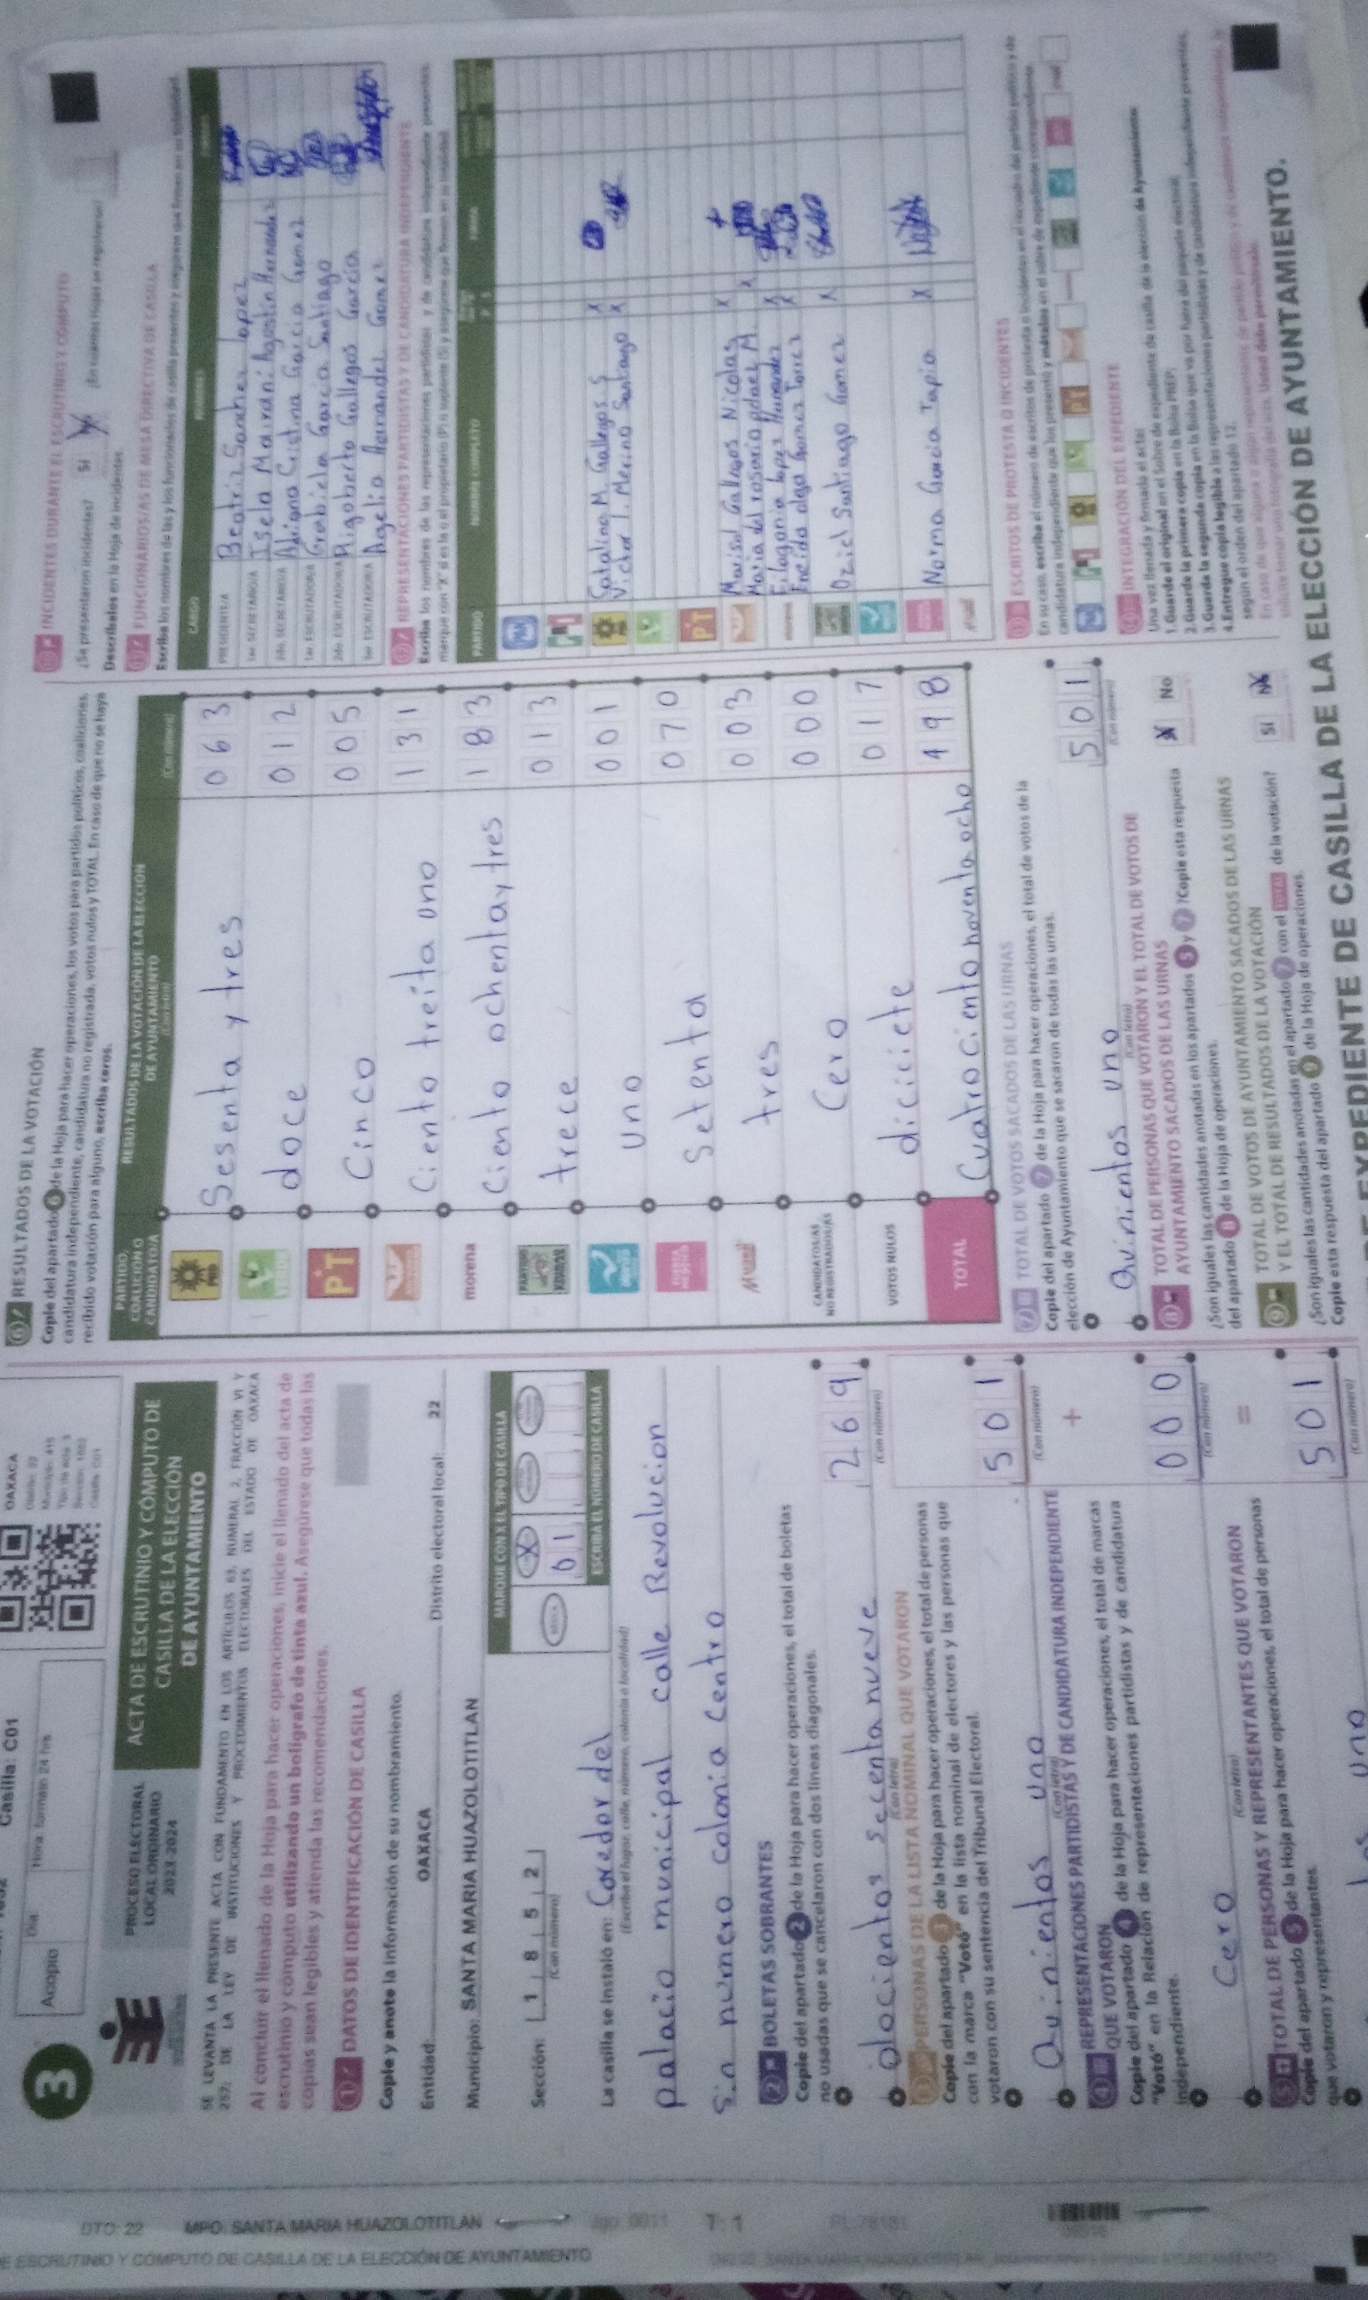 Casilla: C01
OAXACA
3
Acopio
Día
Hora: formato 24 hrs
PROCESO ELECTORAL
LOCAL ORDINARIO
2023-2024
ACTA DE ESCRUTINIO Y CÓMPUTO DE
CASILLA DE LA ELECCIÓN
DE AYUNTAMIENTO
SE LEVANTA LA PRESENTE ACTA CON FUNDAMENTO EN LOS ARTÍCULOS 63, NUMERAL 2, FRACCIÓN VI Y
257; DE LA LEY DE INSTITUCIONES Y PROCEDIMIENTOS ELECTORALES DEL ESTADO DE OAXACA
Al concluir el llenado de la Hoja para hacer operaciones, inicie el llenado del acta de
escrutinio y cómputo utilizando un bolígrafo de tinta azul. Asegúrese que todas las
copias sean legibles y atienda las recomendaciones.
1 DATOS DE IDENTIFICACIÓN DE CASILLA
Copie y anote la información de su nombramiento.
Entidad: OAXACA Distrito electoral local: 22
Municipio: SANTA MARIA HUAZOLOTITLAN
Sección: 1 8 5 2
(Con número)
MARQUE CON X EL TIPO DE CASILLA
X
01
ESCRIBA EL NÚMERO DE CASILLA
La casilla se instaló en: Coredor del
(Escriba el lugar, calle, número, colonia o localidad)
palacio municipal calle Revolucion
Sin número colonia Centro
2 BOLETAS SOBRANTES
Copie del apartado 2 de la Hoja para hacer operaciones, el total de boletas
no usadas que se cancelaron con dos líneas diagonales.
docientos secenta nueve
(Con letra)
269
(Con número)
3 PERSONAS DE LA LISTA NOMINAL QUE VOTARON
Copie del apartado 3 de la Hoja para hacer operaciones, el total de personas
con la marca "Votó" en la lista nominal de electores y las personas que
votaron con su sentencia del Tribunal Electoral.
Quinientos uno
(Con letra)
501
(Con número)
+
4 REPRESENTACIONES PARTIDISTAS Y DE CANDIDATURA INDEPENDIENTE
QUE VOTARON
Copie del apartado 4 de la Hoja para hacer operaciones, el total de marcas
"Votó" en la Relación de representaciones partidistas y de candidatura
independiente.
Cero
(Con letra)
000
(Con número)
=
5 TOTAL DE PERSONAS Y REPRESENTANTES QUE VOTARON
Copie del apartado 5 de la Hoja para hacer operaciones, el total de personas
que votaron y representantes.
uno
501
(Con número)
6 RESULTADOS DE LA VOTACIÓN
Copie del apartado 6 de la Hoja para hacer operaciones, los votos para partidos políticos, coaliciones,
candidatura independiente, candidatura no registrada, votos nulos y TOTAL. En caso de que no se haya
recibido votación para alguno, escriba ceros.
PARTIDO,
COALICIÓN O
CANDIDATO/A
RESULTADOS DE LA VOTACIÓN DE LA ELECCIÓN
DE AYUNTAMIENTO
(Con letra)
(Con número)
PRD Sesenta y tres 063
doce 012
PT Cinco 005
Ciento treita uno 131
morena Ciento ochenta y tres 183
trece 013
uno 001
Setenta 070
tres 003
CANDIDATOS/AS
NO REGISTRADOS/AS
Cero 000
VOTOS NULOS diciciete 017
TOTAL Cuatrociento noventa ocho 498
7 TOTAL DE VOTOS SACADOS DE LAS URNAS
Copie del apartado 7 de la Hoja para hacer operaciones, el total de votos de la
elección de Ayuntamiento que se sacaron de todas las urnas.
Quinientos uno
(Con letra)
501
(Con número)
8 TOTAL DE PERSONAS QUE VOTARON Y EL TOTAL DE VOTOS DE
AYUNTAMIENTO SACADOS DE LAS URNAS
¿Son iguales las cantidades anotadas en los apartados 5 y 7? Copie esta respuesta
del apartado 8 de la Hoja de operaciones.
No
9 TOTAL DE VOTOS DE AYUNTAMIENTO SACADOS DE LAS URNAS
Y EL TOTAL DE RESULTADOS DE LA VOTACIÓN
¿Son iguales las cantidades anotadas en el apartado 7 con el TOTAL de la votación?
Copie esta respuesta del apartado 9 de la Hoja de operaciones.
Sí
INCIDENTES DURANTE EL ESCRUTINIO Y CÓMPUTO
¿Se presentaron incidentes? Sí
¿En cuántas Hojas se registraron?
Descríbalos en la Hoja de incidentes.
FUNCIONARIOS/AS DE MESA DIRECTIVA DE CASILLA
Escriba los nombres de las y los funcionarios de casilla presentes y asegúrese que firmen en su totalidad.
CARGO
NOMBRES
PRESIDENTE/A Beatriz Sanchez lopez
1er. SECRETARIO/A Isela Mairani Agustin Hernandez
2do. SECRETARIO/A Adriana Cristina Garcia Gomez
1er. ESCRUTADOR/A Grabiela Garcia Santiago
2do. ESCRUTADOR/A Rigoberto Gallegos Garcia
3er. ESCRUTADOR/A Argelia Hernandez Gomez
REPRESENTACIONES PARTIDISTAS Y DE CANDIDATURA INDEPENDIENTE
Escriba los nombres de las representaciones partidistas y de candidatura independiente presentes,
marque con "X" si es la o el propietario (P) o suplente (S) y asegúrese que firmen en su totalidad.
PARTIDO
NOMBRE COMPLETO
FIRMA
PAN
Catalina M. Gallegos S X
Victor I. Merino Santiago X
PT
Marisol Gallegos Nicolas X
Maria del rosario pelaez M X
morena Filogonio lopez Hernandez X
Eneida olega Gomez Torrez X
Oziel Santiago Gomez X
Norma Garcia Tapia X
ESCRITOS DE PROTESTA O INCIDENTES
En su caso, escriba el número de escritos de protesta o incidentes en el recuadro del partido político y de
candidatura independiente que los presentó y métalos en el sobre de expediente correspondiente.
INTEGRACIÓN DEL EXPEDIENTE
Una vez llenada y firmada el acta:
1. Guarde el original en el Sobre de expediente de casilla de la elección de Ayuntamiento.
2. Guarde la primera copia en la Bolsa PREP.
3. Guarde la segunda copia en la Bolsa que va por fuera del paquete electoral.
4. Entregue copia legible a las representaciones partidistas y de candidatura independiente presentes,
según el orden del apartado 12.
EXPEDIENTE DE CASILLA DE LA ELECCIÓN DE AYUNTAMIENTO.
DTO: 22 MPO: SANTA MARIA HUAZOLOTITLAN
T: 1
DE ESCRUTINIO Y CÓMPUTO DE CASILLA DE LA ELECCIÓN DE AYUNTAMIENTO